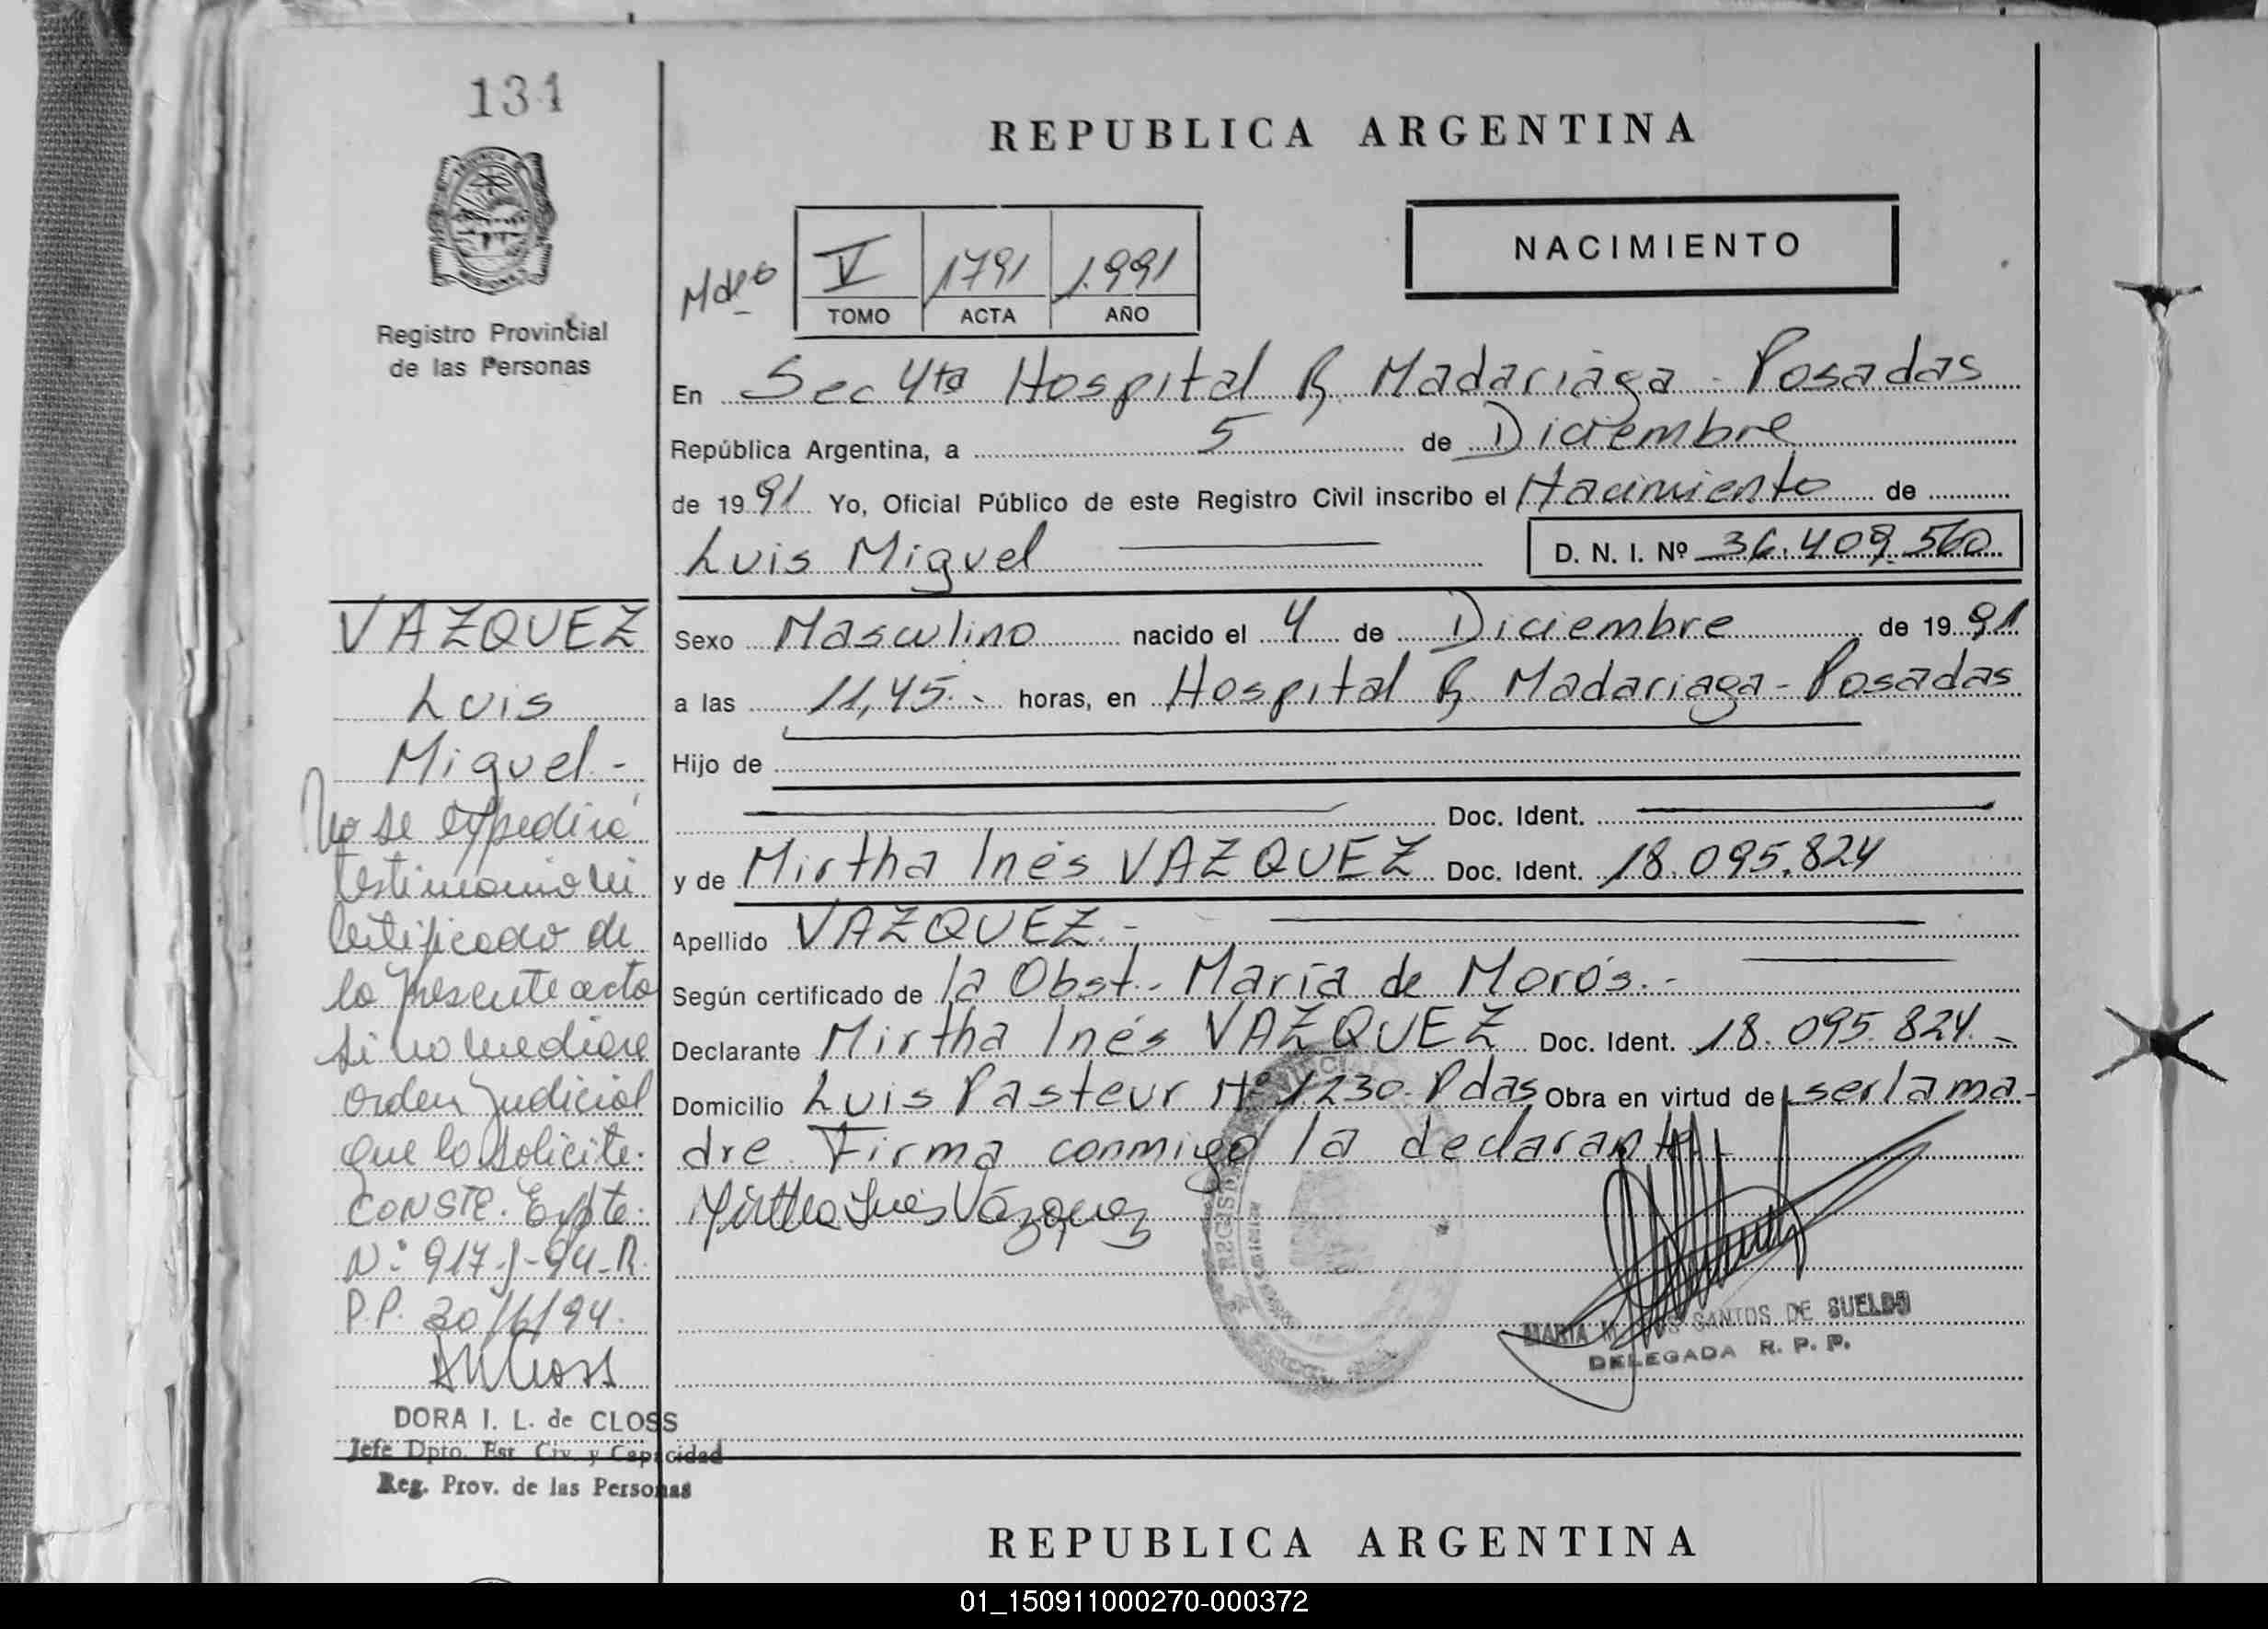 131
Registro Provincial
de las Personas
REPUBLICA ARGENTINA
NACIMIENTO
V 1791 1.991
TOMO ACTA AÑO
En Sec 4ta Hospital R. Madariaga - Posadas
República Argentina, a 5 de Diciembre
de 1991 Yo, Oficial Público de este Registro Civil inscribo el Nacimiento de
Luis Miguel D. N. I. Nº 36.409.560
Sexo Masculino nacido el 4 de Diciembre de 1991
a las 11,45.- horas, en Hospital R. Madariaga - Posadas
Hijo de
Doc. Ident.
y de Mirtha Inés VAZQUEZ Doc. Ident. 18.095.824
Apellido VAZQUEZ.-
Según certificado de la Obst. María de Morós.-
Declarante Mirtha Inés VAZQUEZ Doc. Ident. 18.095.824.-
Domicilio Luis Pasteur Nº 1230-Pdas Obra en virtud de ser la ma-
dre Firma conmigo la declarante.-
Mirtha Inés Vázquez
MARIA SANTOS DE SUELDO
DELEGADA R. P. P.
VAZQUEZ
Luis
Miguel.-
No se expedirá
testimonio ni
certificado de
la presente acta
si no mediare
orden judicial
que lo solicite.
CONSTE. Expte.
Nº 917-J-94-R.
P.P. 30/6/94.
DORA I. L. de CLOSS
Jefe Dpto. Est. Civ. y Capacidad
Reg. Prov. de las Personas
REPUBLICA ARGENTINA
01_150911000270-000372